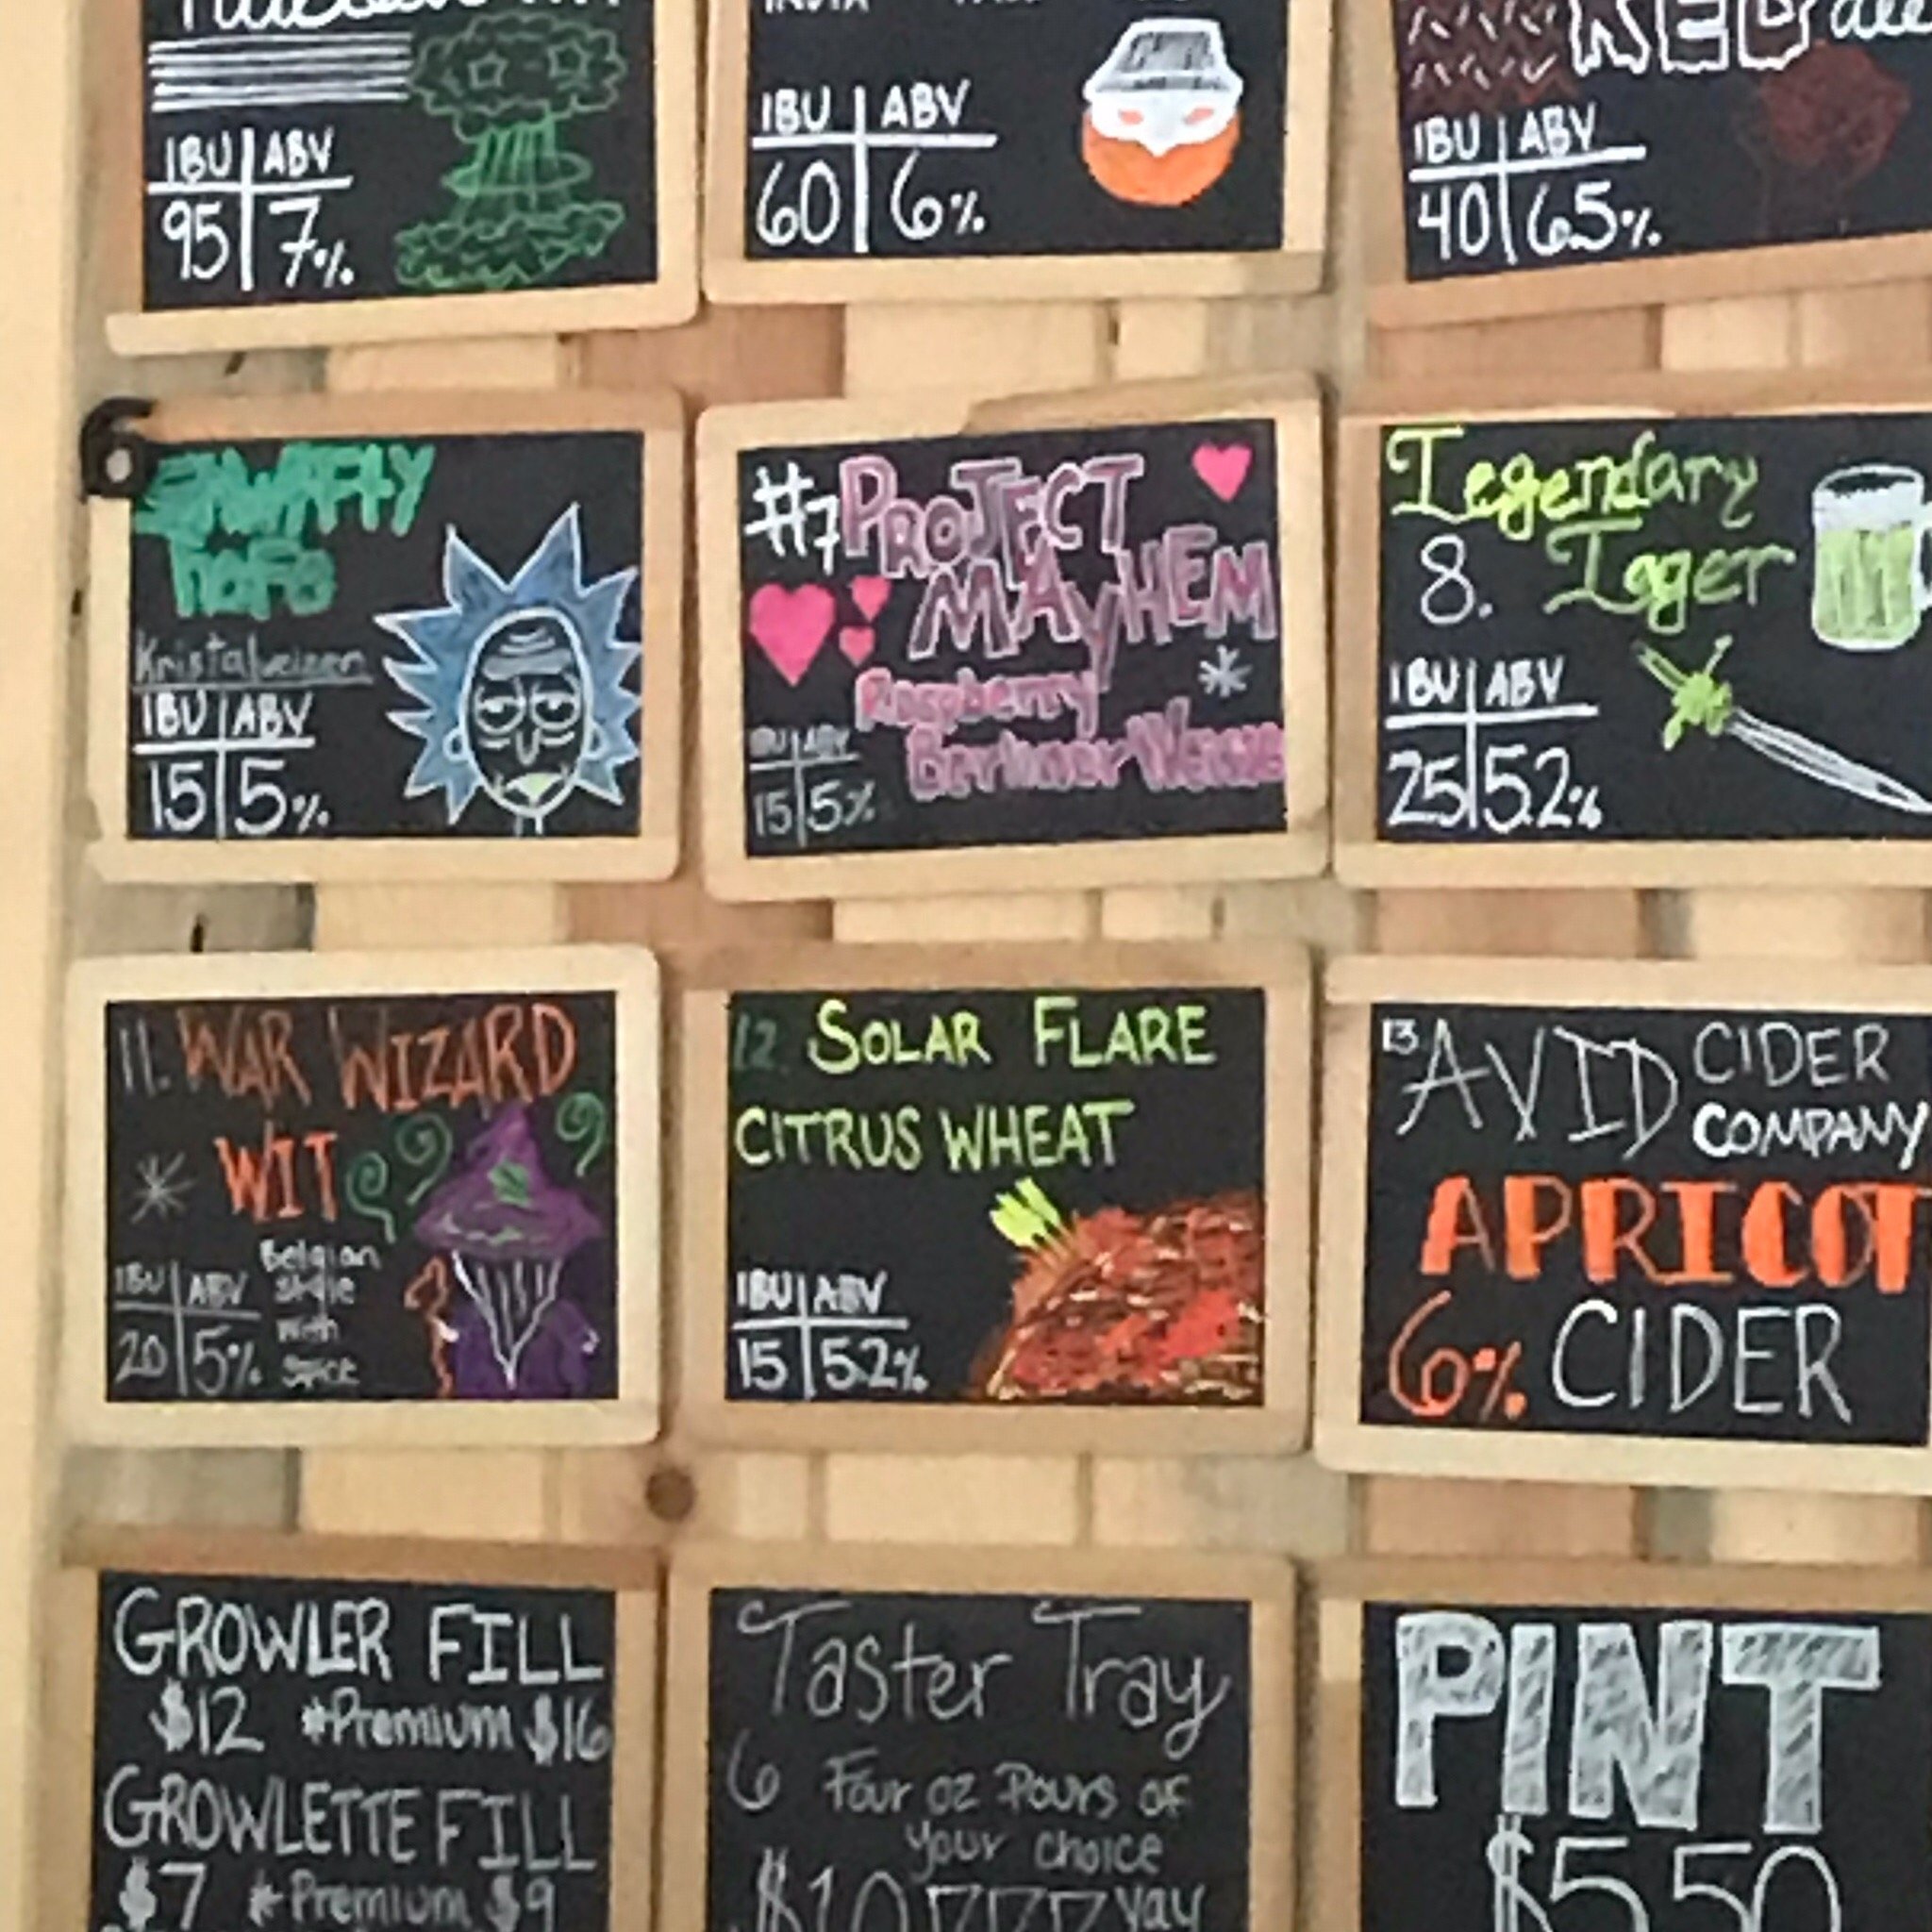 IBU ABV
95 7%
INDIA
IBU ABV
60 6%
RED ale
IBU ABV
40 6.5%
6
SHWIFTY
HAFO
Kristalweizen
IBU ABV
15 5%
#7 PROJECT
MAYHEM
Raspberry
Berliner Weisse
IBU ABV
15 5%
Legendary
8. Lager
IBU ABV
25 5.2%
11. WAR WIZARD
WIT
Belgian
Style
With
Spice
IBU ABV
20 5%
12. SOLAR FLARE
CITRUS WHEAT
IBU ABV
15 5.2%
13 AVID CIDER
COMPANY
APRICOT
6% CIDER
GROWLER FILL
$12 *Premium $16
GROWLETTE FILL
$7 *Premium $9
Taster Tray
6 Four oz Pours of
your choice
$10 yay
PINT
$5.50